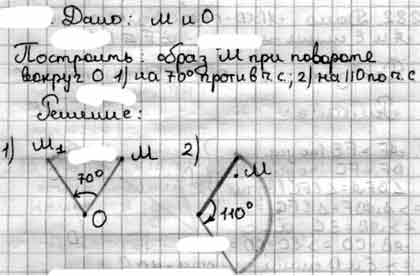 Дано: М и О
Построить: образ М при повороте
вокруг О 1) на 70° против ч.с.; 2) на 110 по ч.с
Решение:
1) М₁ М 2) М
70° 110°
О